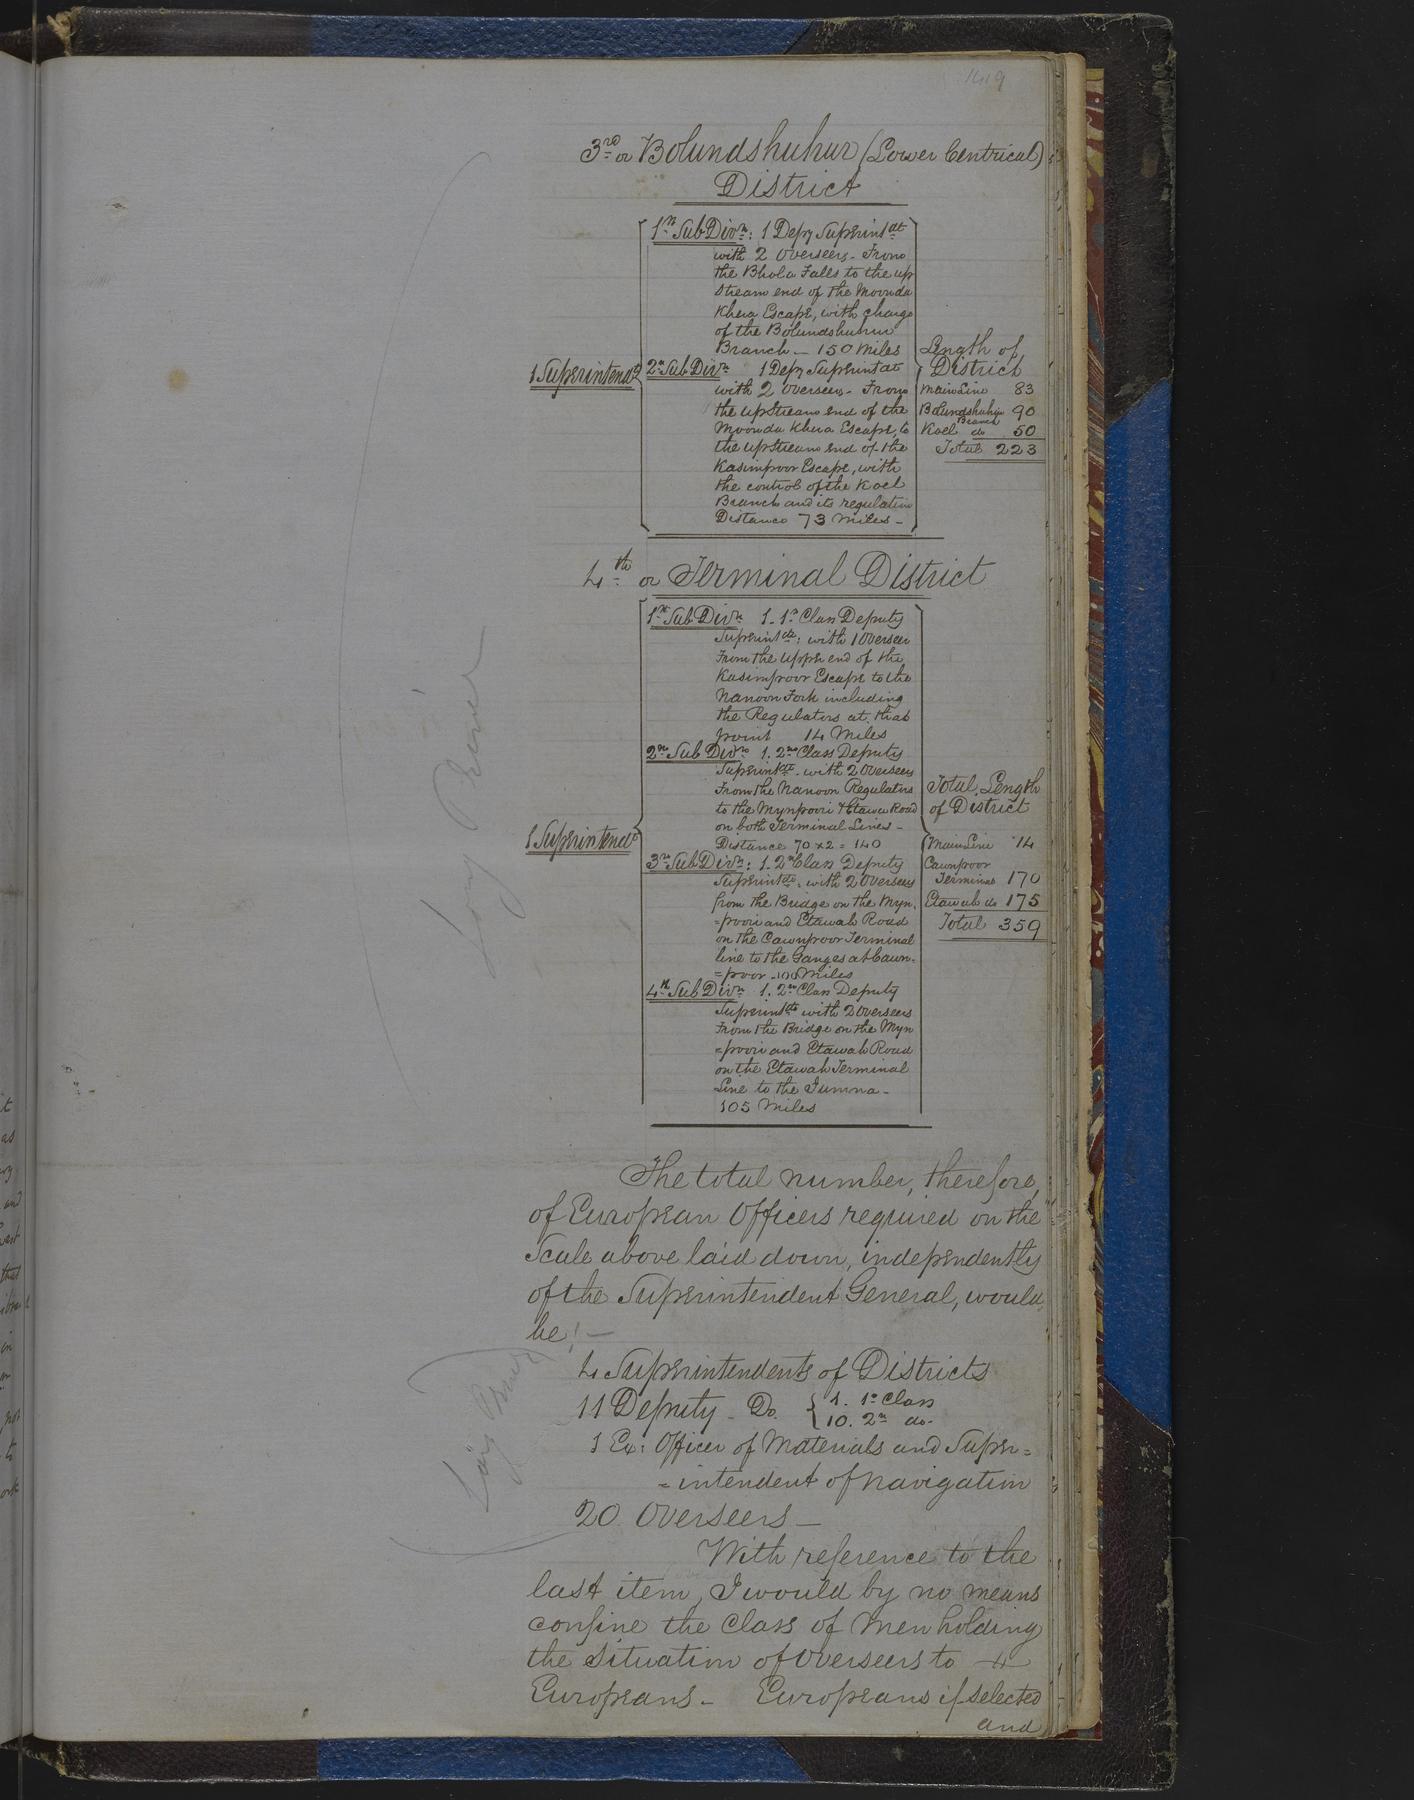 1419
3rd or Bolundshuhur (Lower Centrical)
District
1st Sub Divn: 1 Depy Superintdt
with 2 Overseers - From
the Bhola Falls to the up
stream end of the Moonda
Khera Escape, with charge
of the Bolundshuhur
Branch - 150 Miles
1 Superintendt
2n Sub Divn 1 Depy Superintdt
with 2 Overseers - From
the upstream end of the
Moonda Khera Escape, to
the upstream end of the
Kasimpoor Escape, with
the control of the Koel
Branch and its regulation
Distance 73 Miles -
Length of
District
Main Line 83
Bolundshuhur Branch 90
Koel do 50
Total 223
4th or Terminal District
1st Sub Divn 1 - 1st Class Deputy
Superintdt: with 1 Overseer
From the upper end of the
Kasimpoor Escape to the
Nanoon Fork including
the Regulators at that
point 14 Miles
2nd Sub Divn 1. 2nd Class Deputy
Superintdt - with 2 Overseers
From the Nanoon Regulators
to the Mynpoori & Etawa Road
on both Terminal Lines -
Distance 70 x 2 = 140
1 Superintendt
3rd Sub Divn: 1. 2n Class Deputy
Superintdt: with 2 Overseers
from the Bridge on the Myn
=poori and Etawah Road
on the Cawnpoor Terminal
line to the Ganges at Cawn-
=poor - 100 Miles
4th Sub Divn 1. 2nd Class Deputy
Superintdt with 2 Overseers
From the Bridge on the Myn
=poori and Etawah Road
on the Etawah Terminal
Line to the Jumna -
105 Miles
Total Length
of District
Main Line 14
Cawnpoor
Terminal 170
Etawah do 175
Total 359
The total number, therefore,
of European Officers required on the
Scale above laid down, independently
of the Superintendent General, would
be: -
4 Superintendents of Districts
11 Deputy - Do. { 1. 1st Class
10. 2n do.
1 Ex: Officer of Materials and Super=
=intendent of Navigation
20 Overseers -
With reference to the
last item, I would by no means
confine the Class of Men holding
the Situation of Overseers to
Europeans - Europeans if selected
and
Long Primer
Long Primer